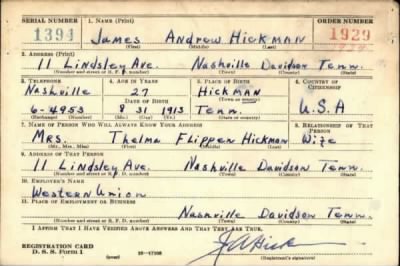 SERIAL NUMBER 1. NAME (Print) ORDER NUMBER
1394 James Andrew Hickman 1929
(First) (Middle) (Last)
2. ADDRESS (Print)
11 Lindsley Ave. Nashville Davidson Tenn.
(Number and street or R. F. D. number) (Town) (County) (State)
3. TELEPHONE 4. AGE IN YEARS 5. PLACE OF BIRTH 6. COUNTRY OF CITIZENSHIP
Nashville 27 Hickman
DATE OF BIRTH (Town or county)
6-4953 8 31 1913 Tenn. U.S.A
(Exchange) (Number) (Mo.) (Day) (Yr.) (State or country)
7. NAME OF PERSON WHO WILL ALWAYS KNOW YOUR ADDRESS 8. RELATIONSHIP OF THAT PERSON
Mrs. Thelma Flippen Hickman Wife
(Mr., Mrs., Miss) (First) (Middle) (Last)
9. ADDRESS OF THAT PERSON
11 Lindsley Ave. Nashville Davidson Tenn.
(Number and street or R. F. D. number) (Town) (County) (State)
10. EMPLOYER'S NAME
Western Union
11. PLACE OF EMPLOYMENT OR BUSINESS
Nashville Davidson Tenn.
(Number and street or R. F. D. number) (Town) (County) (State)
I AFFIRM THAT I HAVE VERIFIED ABOVE ANSWERS AND THAT THEY ARE TRUE.
REGISTRATION CARD
D. S. S. Form 1 (over) 16—17105
(Registrant's signature)